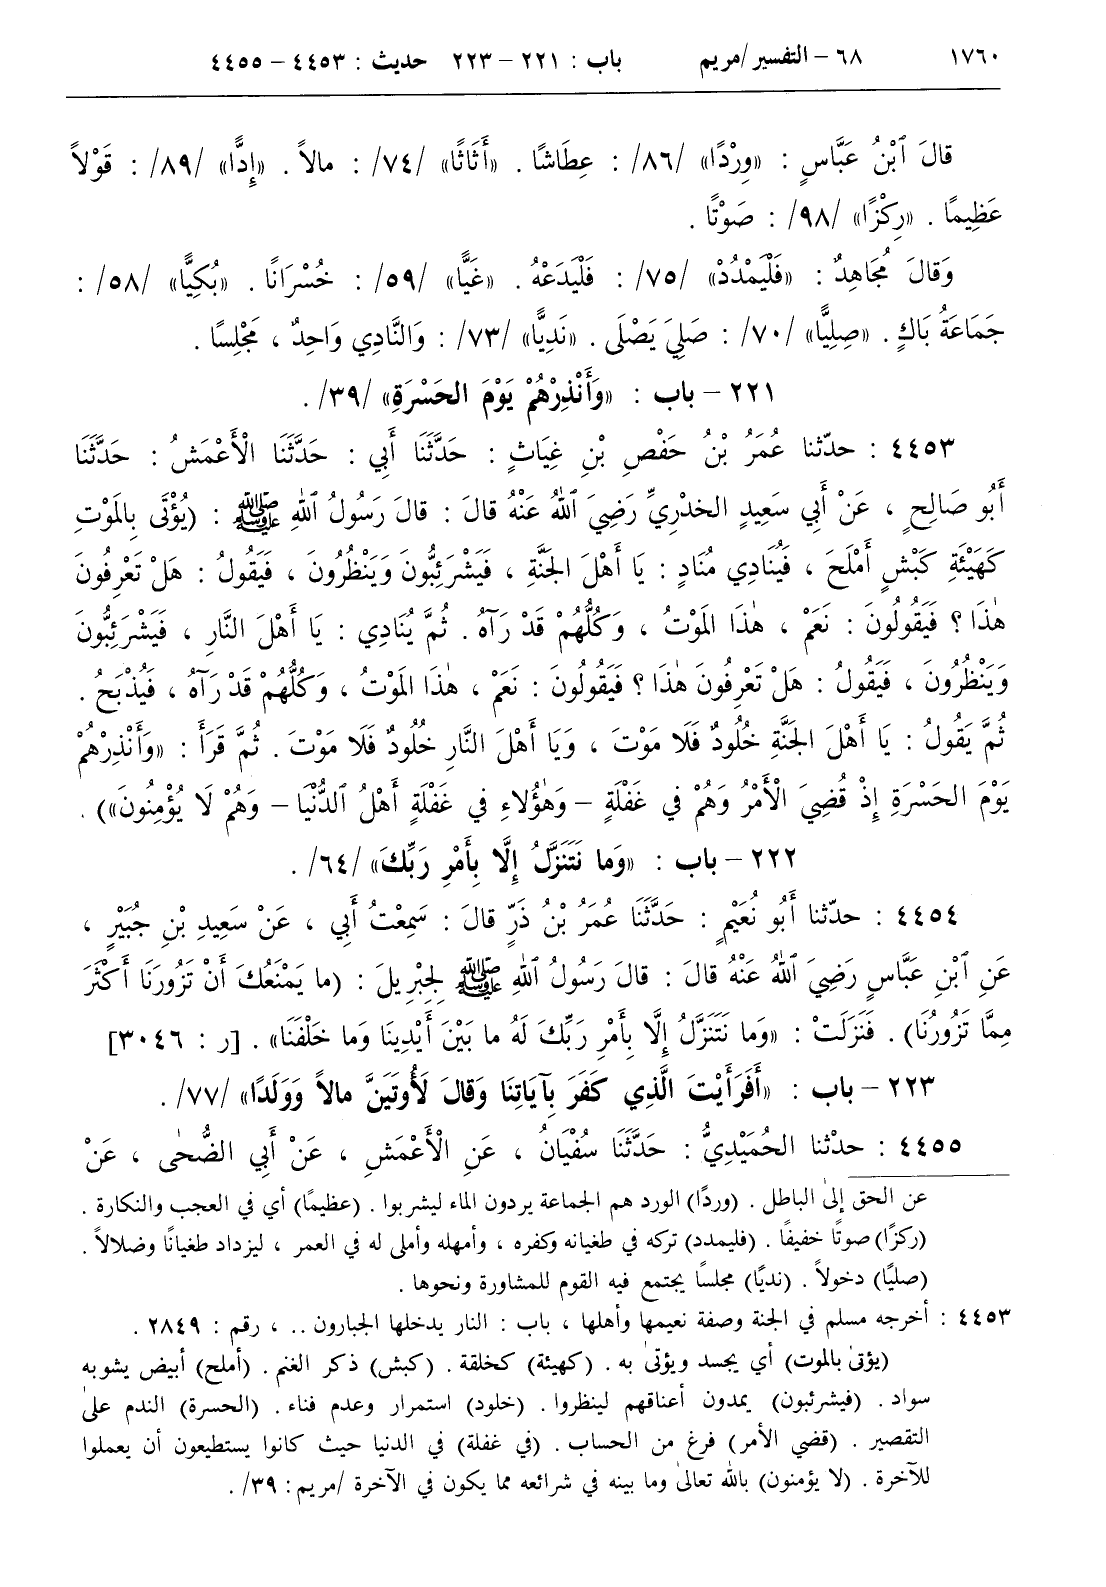 ١٧٦٠ ٦٨ – التفسير/مريم باب : ٢٢١ – ٢٢٣ حديث : ٤٤٥٣ – ٤٤٥٥
قالَ ٱبْنُ عَبَّاسٍ : «وِرْدًا» /٨٦/ : عِطَاشًا . «أَثَاثًا» /٧٤/ : مالاً . «إِدًّا» /٨٩/ : قَوْلاً
عَظِيمًا . «رِكْزًا» /٩٨/ : صَوْتًا .
وَقالَ مُجَاهِدٌ : «فَلْيَمْدُدْ» /٧٥/ : فَلْيَدَعْهُ . «غَيًّا» /٥٩/ : خُسْرَانًا . «بُكِيًّا» /٥٨/ :
جَمَاعَةُ بَاكٍ . «صِلِيًّا» /٧٠/ : صَلِيَ يَصْلَى . «نَدِيًّا» /٧٣/ : وَالنَّادِي وَاحِدٌ ، مَجْلِسًا .
٢٢١ – باب : «وَأَنْذِرْهُمْ يَوْمَ الحَسْرَةِ» /٣٩/ .
٤٤٥٣ : حدّثنا عُمَرُ بْنُ حَفْصِ بْنِ غِيَاثٍ : حَدَّثَنَا أَبِي : حَدَّثَنَا الْأَعْمَشُ : حَدَّثَنَا
أَبُو صَالِحٍ ، عَنْ أَبِي سَعِيدٍ الخدْرِيِّ رَضِيَ ٱللهُ عَنْهُ قالَ : قالَ رَسُولُ ٱللهِ ﷺ : (يُؤْتَى بِالمَوْتِ
كَهَيْئَةِ كَبْشٍ أَمْلَحَ ، فَيُنَادِي مُنَادٍ : يَا أَهْلَ الجَنَّةِ ، فَيَشْرَئِبُّونَ وَيَنْظُرُونَ ، فَيَقُولُ : هَلْ تَعْرِفُونَ
هٰذَا ؟ فَيَقُولُونَ : نَعَمْ ، هٰذَا المَوْتُ ، وَكُلُّهُمْ قَدْ رَآهُ . ثُمَّ يُنَادِي : يَا أَهْلَ النَّارِ ، فَيَشْرَئِبُّونَ
وَيَنْظُرُونَ ، فَيَقُولُ : هَلْ تَعْرِفُونَ هٰذَا ؟ فَيَقُولُونَ : نَعَمْ ، هٰذَا المَوْتُ ، وَكُلُّهُمْ قَدْ رَآهُ ، فَيُذْبَحُ .
ثُمَّ يَقُولُ : يَا أَهْلَ الجَنَّةِ خُلُودٌ فَلَا مَوْتَ ، وَيَا أَهْلَ النَّارِ خُلُودٌ فَلَا مَوْتَ . ثُمَّ قَرَأَ : «وَأَنْذِرْهُمْ
يَوْمَ الحَسْرَةِ إِذْ قُضِيَ الْأَمْرُ وَهُمْ في غَفْلَةٍ – وَهٰؤُلَاءِ في غَفْلَةٍ أَهْلُ ٱلدُّنْيَا – وَهُمْ لَا يُؤْمِنُونَ») .
٢٢٢ – باب : «وَما نَتَنَزَّلُ إِلَّا بِأَمْرِ رَبِّكَ» /٦٤/ .
٤٤٥٤ : حدّثنا أَبُو نُعَيْمٍ : حَدَّثَنَا عُمَرُ بْنُ ذَرٍّ قالَ : سَمِعْتُ أَبِي ، عَنْ سَعِيدِ بْنِ جُبَيْرٍ ،
عَنِ ٱبْنِ عَبَّاسٍ رَضِيَ ٱللهُ عَنْهُ قالَ : قالَ رَسُولُ ٱللهِ ﷺ لِجِبْرِيلَ : (ما يَمْنَعُكَ أَنْ تَزُورَنَا أَكْثَرَ
مِمَّا تَزُورُنَا) . فَنَزَلَتْ : «وَما نَتَنَزَّلُ إِلَّا بِأَمْرِ رَبِّكَ لَهُ ما بَيْنَ أَيْدِينَا وَما خَلْفَنَا» . [ر : ٣٠٤٦]
٢٢٣ – باب : «أَفَرَأَيْتَ الَّذِي كَفَرَ بِآيَاتِنَا وَقالَ لَأُوتَيَنَّ مالاً وَوَلَدًا» /٧٧/ .
٤٤٥٥ : حدّثنا الحُمَيْدِيُّ : حَدَّثَنَا سُفْيَانُ ، عَنِ الْأَعْمَشِ ، عَنْ أَبِي الضُّحٰى ، عَنْ
عن الحق إلى الباطل . (وردًا) الورد هم الجماعة يردون الماء ليشربوا . (عظيمًا) أي في العجب والنكارة .
(ركزًا) صوتًا خفيفًا . (فليمدد) تركه في طغيانه وكفره ، وأمهله وأملى له في العمر ، ليزداد طغيانًا وضلالاً .
(صليًا) دخولاً . (نديًا) مجلسًا يجتمع فيه القوم للمشاورة ونحوها .
٤٤٥٣ : أخرجه مسلم في الجنة وصفة نعيمها وأهلها ، باب : النار يدخلها الجبارون .. ، رقم : ٢٨٤٩ .
(يؤتى بالموت) أي يجسد ويؤتى به . (كهيئة) كخلقة . (كبش) ذكر الغنم . (أملح) أبيض يشوبه
سواد . (فيشرئبون) يمدون أعناقهم لينظروا . (خلود) استمرار وعدم فناء . (الحسرة) الندم على
التقصير . (قضي الأمر) فرغ من الحساب . (في غفلة) في الدنيا حيث كانوا يستطيعون أن يعملوا
للآخرة . (لا يؤمنون) بالله تعالى وما بينه في شرائعه مما يكون في الآخرة /مريم : ٣٩/ .